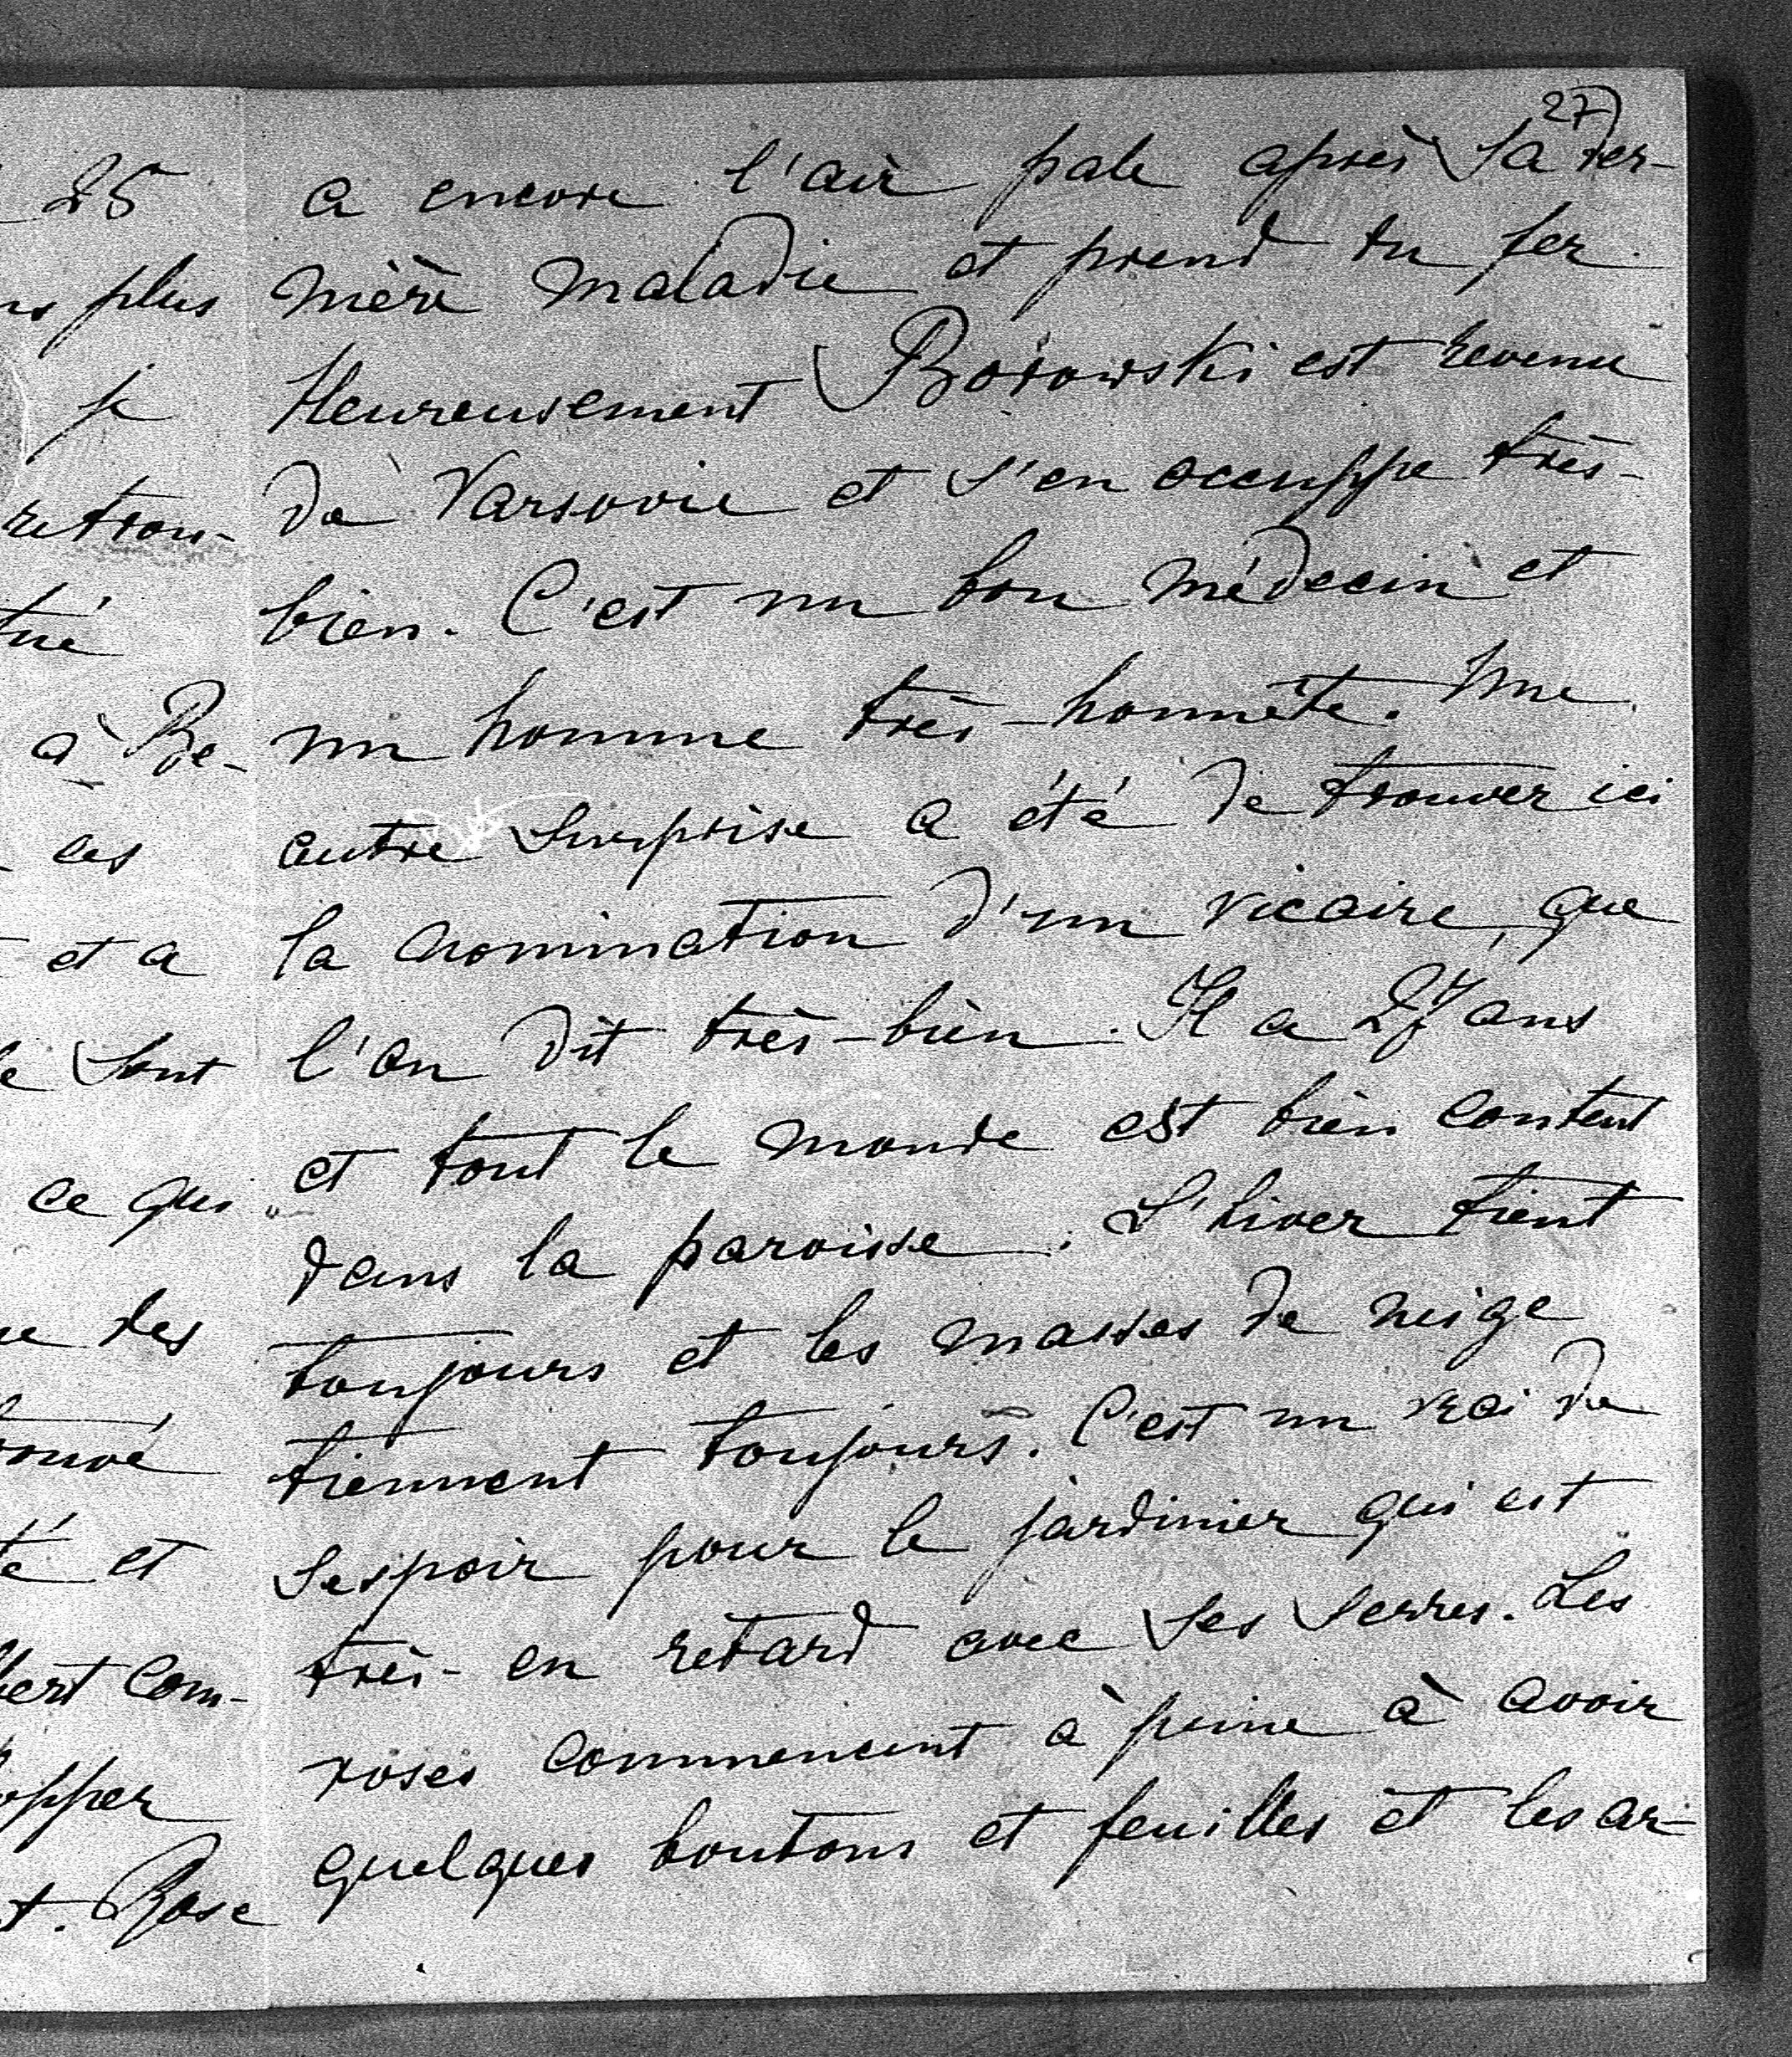 25
plus
je
retrou-
tué
à Be-
ces
et a
le sont
ce qui
des
trouvé
té et
bert com-
opper
t. Rose
27
a encore l'air pale après sa der-
nière maladie et prend du fer.
Heureusement Borowski est revenu
de Varsovie et s'en occuppe très-
bien. C'est un bon médecin et
un homme très-honnête. Une
autre surprise a été de trouver ici
la nomination d'un vicaire, que
l'on dit très-bien. Il a 27 ans
et tout le monde est bien content
dans la paroisse. L'hiver tient
toujours et les masses de neige
tiennent toujours. C'est un vrai de
sespoir pour le jardinier qui est
très-en retard avec ses serres. Les
roses commencent à peine à avoir
quelques boutons et feuilles et les ar-